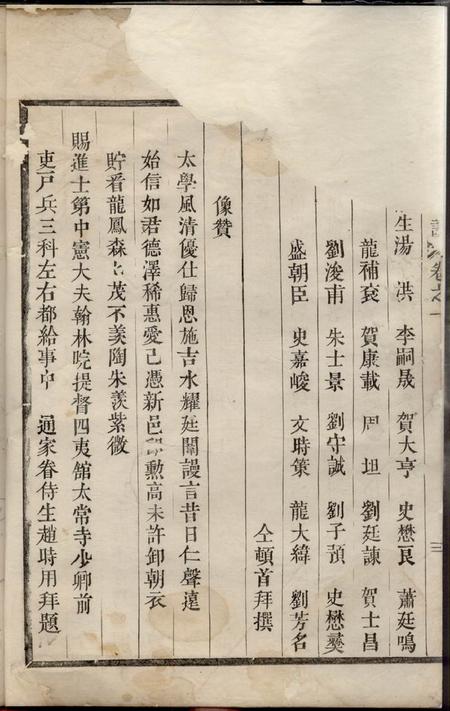 卷之一
三
生湯 洪 李嗣晟 賀大亨 史懋良 蕭廷鳴
龍補袞 賀康載 周 坦 劉廷諫 賀士昌
劉浚甫 朱士景 劉守誠 劉子預 史懋夔
盛朝臣 史嘉峻 文時策 龍大緯 劉芳名
仝頓首拜撰
像贊
太學風清優仕歸恩施吉水耀廷闈謾言昔日仁聲遠
始信如君德澤稀惠愛已憑新邑勳高未許卸朝衣
貯看龍鳳森森茂不羨陶朱羨紫微
賜進士第中憲大夫翰林院提督四夷館太常寺少卿前
吏戶兵三科左右都給事中 通家眷侍生趙時用拜題